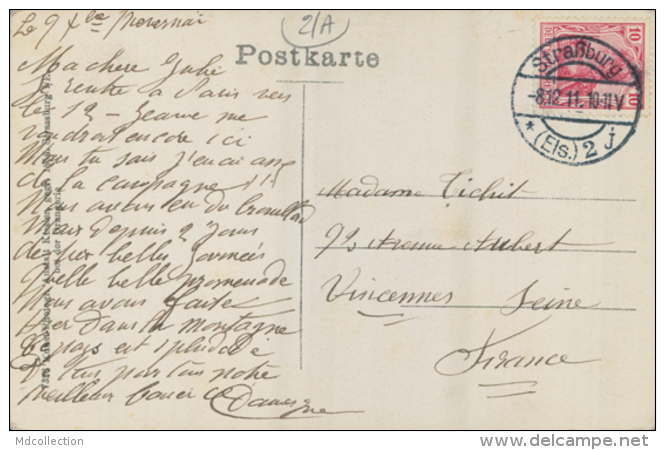 Le 9 Xbre
2/A
Postkarte
Straßburg
-8.12.11.10-11V
* (Els.) 2 j
10 10
Ma chere Julie
Je rentre a Paris vers
le 12 – Jeanne me
voudrait encore ici
Mais tu sais j'en ai assez
de la campagne !!!
Nous avons eu du brouillard
Mais depuis 2 jours
de très belles journées
Quelle belle promenade
Nous avons faite
hier dans la montagne
Le pays est splendide
A tous par tous notre
meilleur
Madame Tichit
93 Avenue Aubert
Vincennes Seine
France
Mdcollection
www.delcampe.net